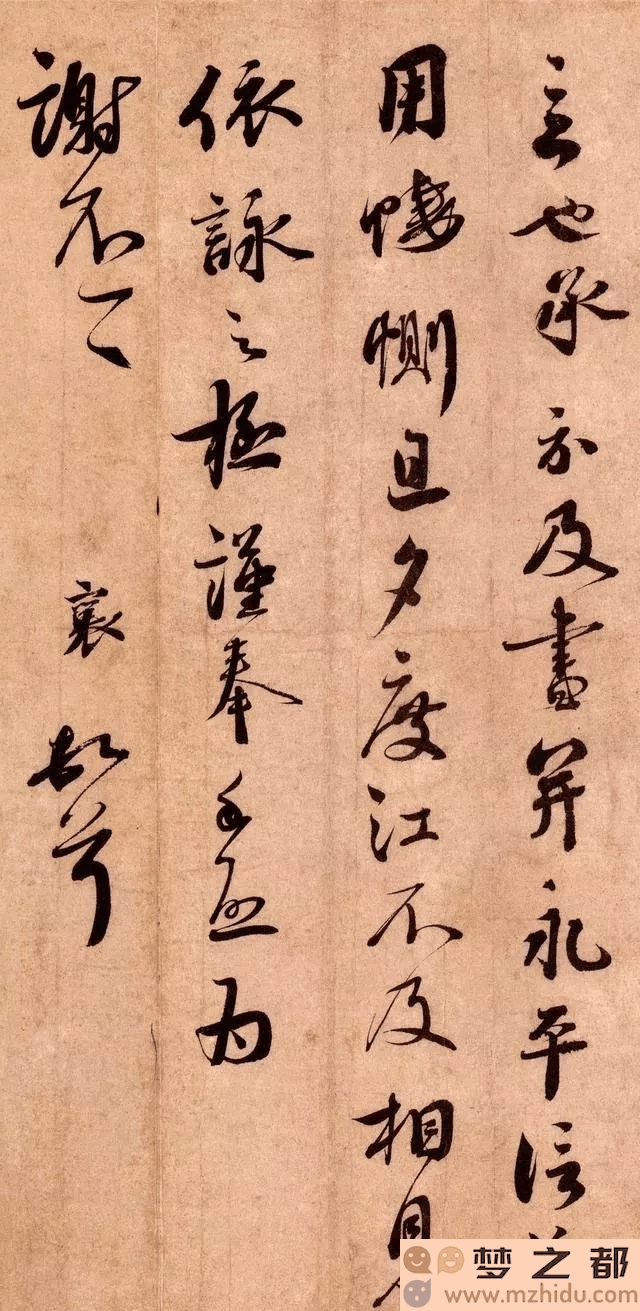 言也承示及書并永平信
用悽惻旦夕度江不及相見
依詠之極謹奉手啓為
謝不一一 襄 頓首
梦之都
www.mzhidu.com